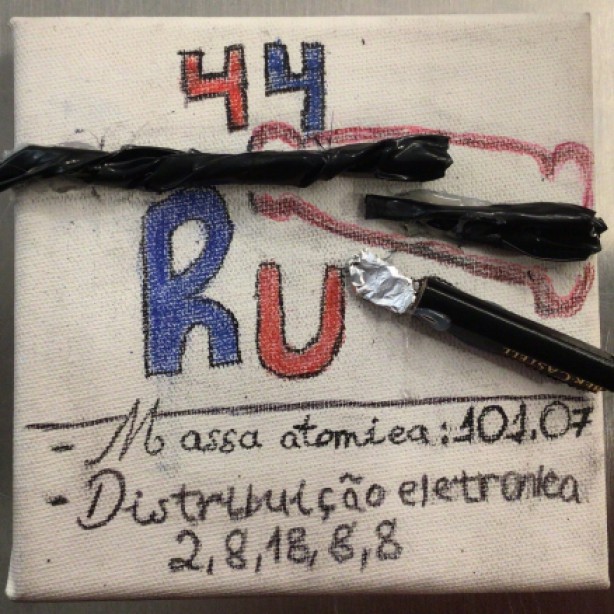 44
Ru
- Massa atomica: 101.07
- Distribuição eletronica
2, 8, 18, 8, 8
CASTELL